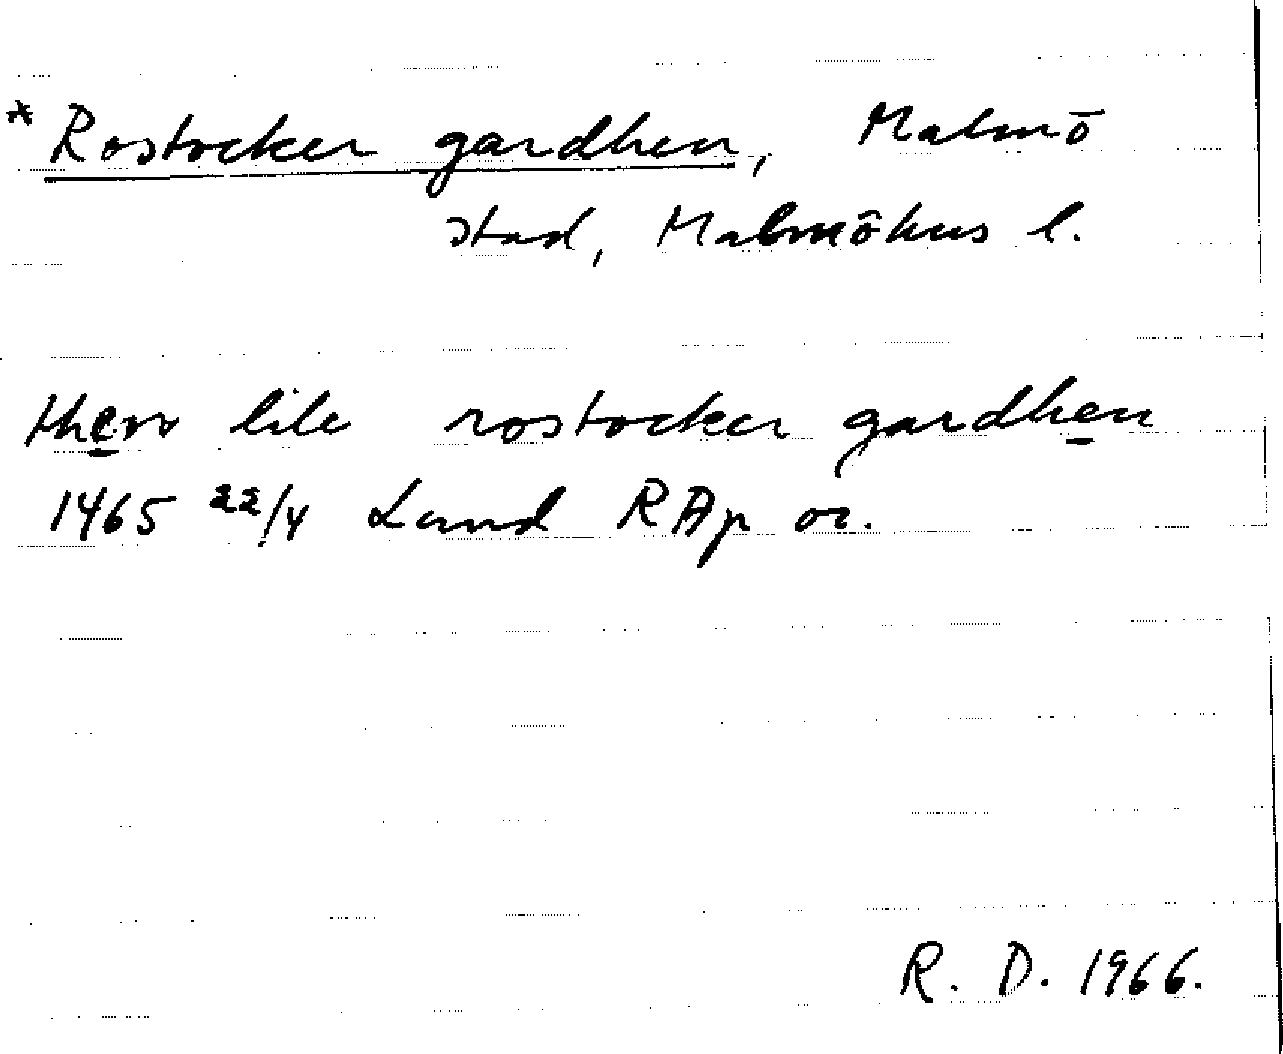 * Rostocker gardhen, Malmö
stad, Malmöhus l.
then lile rostocker gardhen
1465 22/4 Lund RAp or.
R. D. 1966.